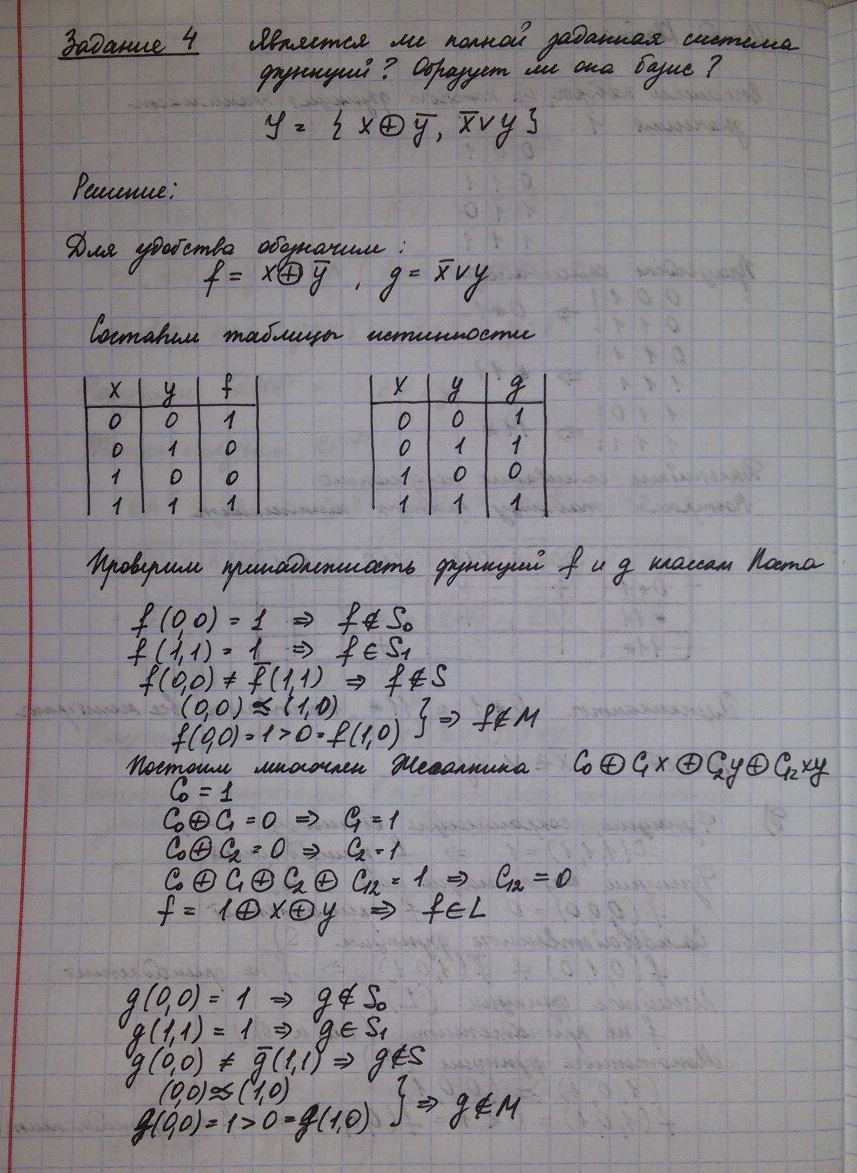 Задание 4 Является ли полной заданная система
функций? Образует ли она базис?
Y = { x⊕ȳ, x̄∨y }
Решение:
Для удобства обозначим:
f = x⊕ȳ , g = x̄∨y
Составим таблицы истинности
x y f x y g
0 0 1 0 0 1
0 1 0 0 1 1
1 0 0 1 0 0
1 1 1 1 1 1
Проверим принадлежность функций f и g классам Поста
f(0,0) = 1 ⇒ f∉S₀
f(1,1) = 1 ⇒ f∈S₁
f(0,0) ≠ f̄(1,1) ⇒ f∉S
(0,0) ≼ (1,0)
f(0,0)=1>0=f(1,0) } ⇒ f∉M
Построим многочлен Жегалкина C₀⊕C₁x⊕C₂y⊕C₁₂xy
C₀ = 1
C₀⊕C₁=0 ⇒ C₁=1
C₀⊕C₂=0 ⇒ C₂=1
C₀⊕C₁⊕C₂⊕C₁₂=1 ⇒ C₁₂=0
f = 1⊕x⊕y ⇒ f∈L
g(0,0) = 1 ⇒ g∉S₀
g(1,1) = 1 ⇒ g∈S₁
g(0,0) ≠ ḡ(1,1) ⇒ g∉S
(0,0) ≼ (1,0)
g(0,0)=1>0=g(1,0) } ⇒ g∉M